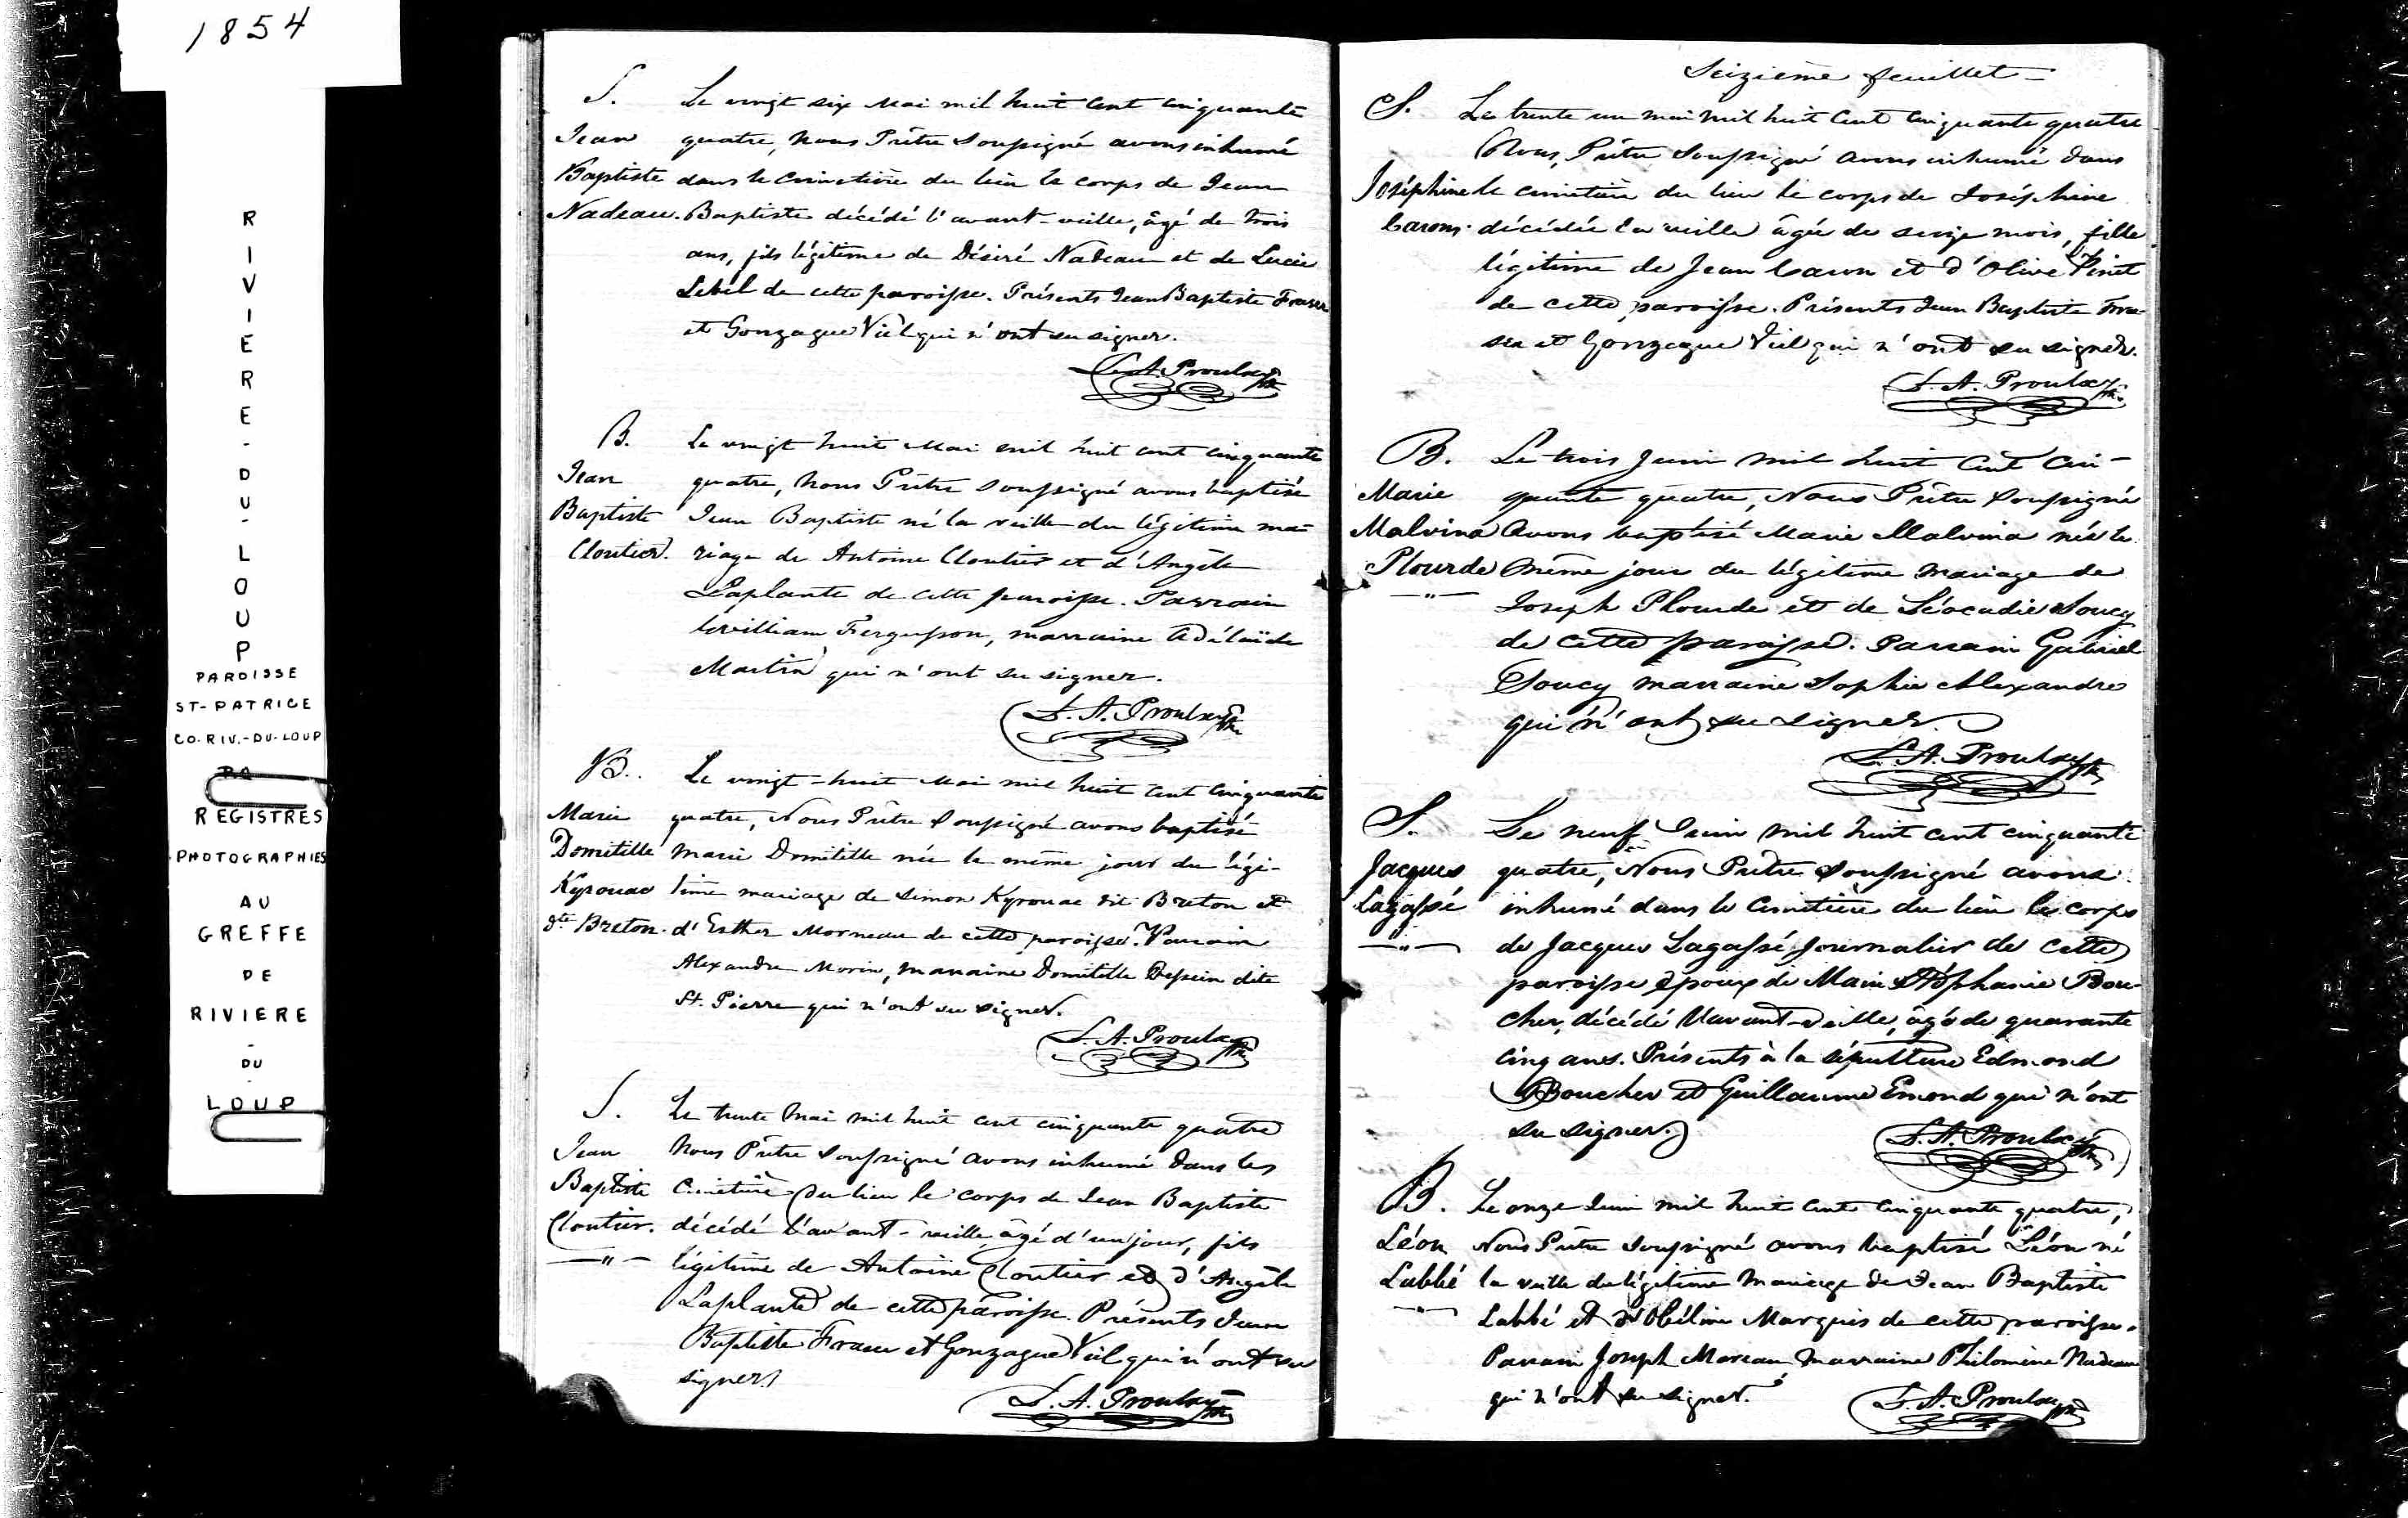 1854
RIVIERE-DU-LOUP
PAROISSE
ST-PATRICE
CO.RIV.-DU-LOUP
REGISTRES
PHOTOGRAPHIES
AU
GREFFE
DE
RIVIERE
-
DU
-
LOUP
S.
Jean
Baptiste
Nadeau.
Le vingt six Mai mil huit cent cinquante
quatre, nous Prêtre soussigné avons inhumé
dans le cimetière du lieu le corps de Jean
Baptiste décédé l'avant-veille, âgé de trois
ans, fils légitime de Désiré Nadeau et de Lucie
Lebel de cette paroisse. Présents Jean Baptiste Fraser
et Gonzague Viel qui n'ont su signer.
L. A. Proulx Ptre
B.
Jean
Baptiste
Cloutier.
Le vingt huit Mai mil huit cent cinquante
quatre, nous Prêtre soussigné avons baptisé
Jean Baptiste né la veille du légitime ma-
riage de Antoine Cloutier et d'Angèle
Laplante de cette paroisse. Parrain
William Fergusson, marraine Adélaïde
Martin qui n'ont su signer.
L. A. Proulx Ptre
B.
Marie
Domitille
Kyrouac
dte Breton.
Le vingt-huit Mai mil huit cent cinquante
quatre, Nous Prêtre soussigné avons baptisé
Marie Domitille née le même jour du légi-
time mariage de Simon Kyrouac dit Breton et
d'Esther Morneau de cette paroisse. Parrain
Alexandre Morin, marraine Domitille Dessein dite
St. Pierre qui n'ont su signer.
L. A. Proulx Ptre
S.
Jean
Baptiste
Cloutier.
—"—
Le trente Mai mil huit cent cinquante quatre
Nous Prêtre soussigné avons inhumé dans les
cimetière du lieu le corps de Jean Baptiste
décédé l'avant-veille, âgé d'un jour, fils
légitime de Antoine Cloutier et d'Angèle
Laplante de cette paroisse. Présents Jean
Baptiste Fraser et Gonzague Viel qui n'ont su
signer.
L. A. Proulx Ptre
Seizième feuillet
S.
Joséphine
Caron.
Le trente un mai mil huit cent cinquante quatre
Nous, Prêtre soussigné avons inhumé dans
le cimetière du lieu le corps de Joséphine
décédée la veille âgée de seize mois, fille
légitime de Jean Caron et d'Olive Pinet
de cette paroisse. Présents Jean Baptiste Fra-
ser et Gonzague Viel qui n'ont su signer.
L. A. Proulx Ptre
B.
Marie
Malvina
Plourde
—"—
Le trois Juin mil huit cent cin-
quante quatre, Nous Prêtre soussigné
avons baptisé Marie Malvina née le
même jour du légitime mariage de
Joseph Plourde et de Léocadie Soucy
de cette paroisse. Parrain Gabriel
Soucy marraine Sophie Alexandre
qui n'ont su signer.
L. A. Proulx Ptre
S.
Jacques
Lagassé
—"—
Le neuf Juin mil huit cent cinquante
quatre, Nous Prêtre soussigné avons
inhumé dans le Cimetière du lieu le corps
de Jacques Lagassé, journalier de cette
paroisse époux de Marie Stéphanie Bou-
cher, décédé l'avant-veille, âgé de quarante
cinq ans. Présents à la sépulture Edmond
Boucher et Guillaume Emond qui n'ont
su signer.
L. A. Proulx Ptre
B.
Léon
Labbé
—"—
Le onze Juin mil huit cent cinquante quatre,
Nous Prêtre soussigné avons baptisé Léon né
la veille du légitime mariage de Jean Baptiste
Labbé et d'Obéline Marquis de cette paroisse.
Parrain Joseph Moreau, marraine Philomène Nadeau
qui n'ont su signer.
L. A. Proulx Ptre